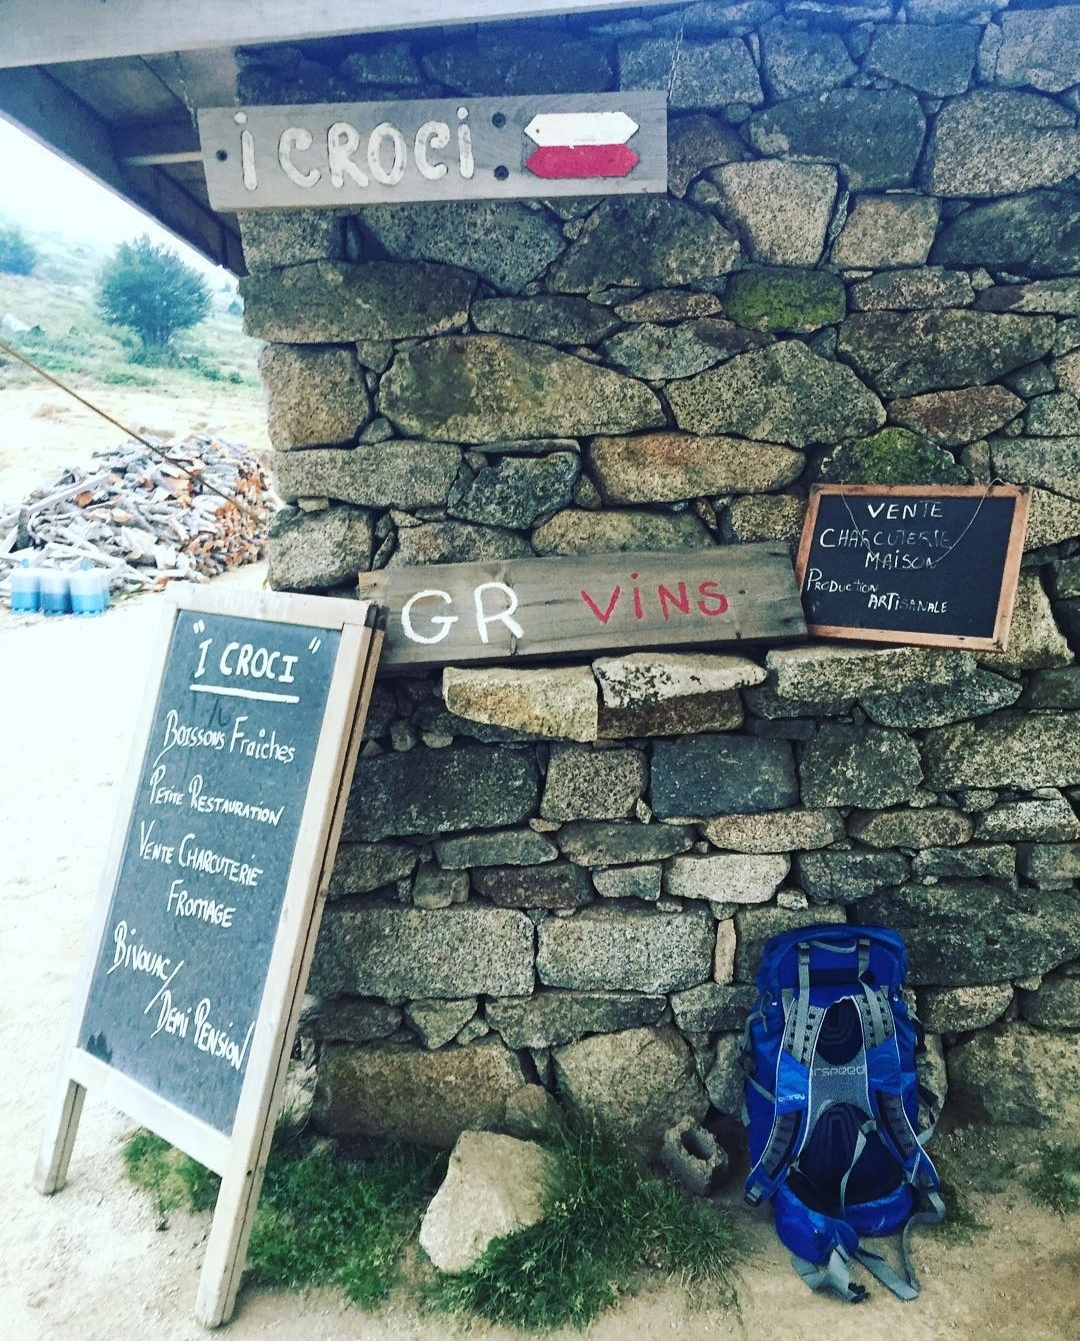 i CROCi
GR ViNS
VENTE
CHARCUTERIE
MAISON
PRODUCTION
ARTISANALE
"I CROCI"
BOISSONS FRAICHES
PETITE RESTAURATION
VENTE CHARCUTERIE
FROMAGE
BIVOUAC/
DEMI PENSION
osprey